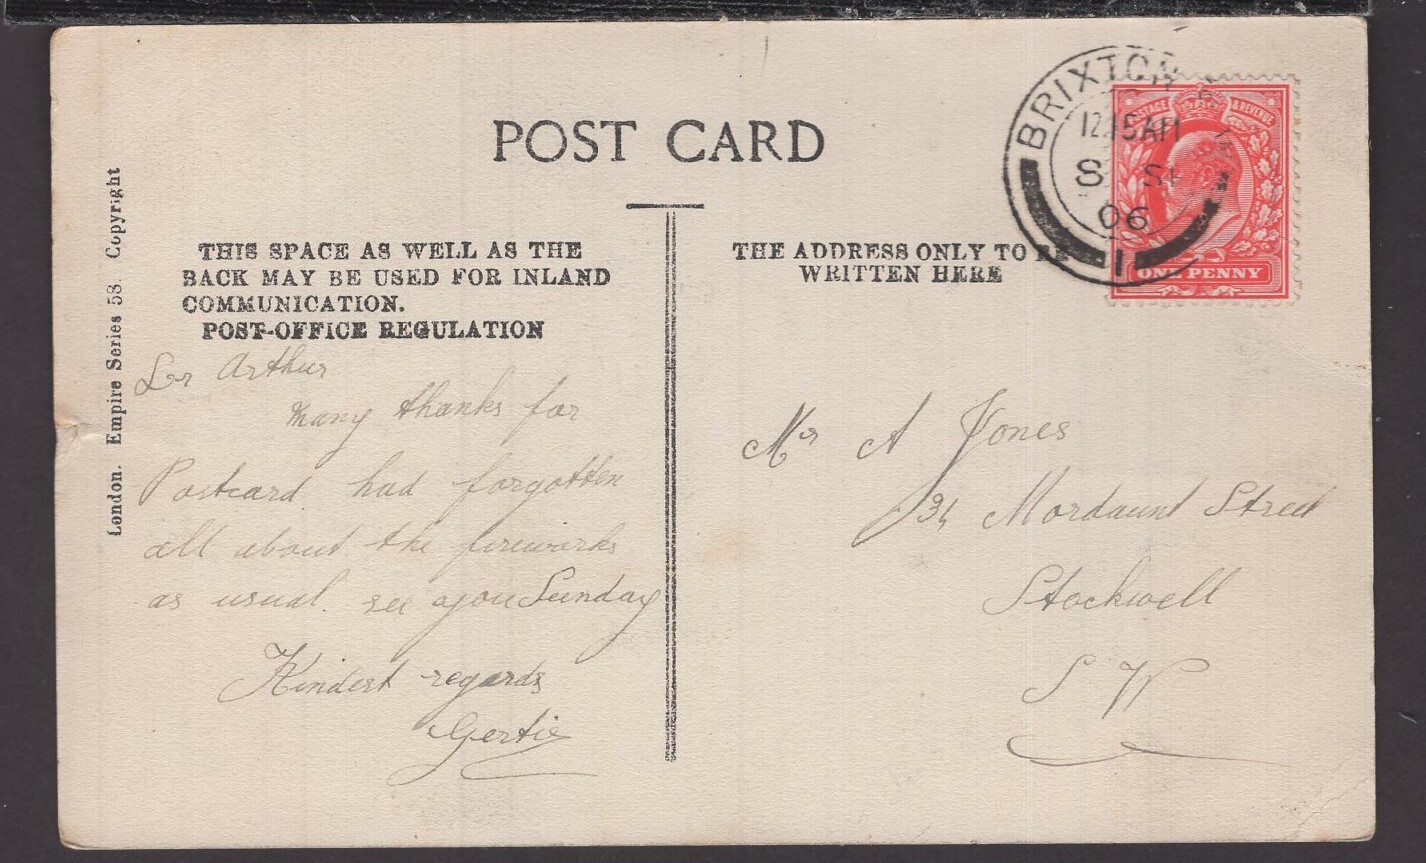 POST CARD
London. Empire Series 53. Copyright
THIS SPACE AS WELL AS THE
BACK MAY BE USED FOR INLAND
COMMUNICATION.
POST-OFFICE REGULATION
Dr Arthur
many thanks for
Postcard had forgotten
all about the fireworks
as usual. see you Sunday
Kindest regards
Gertie
THE ADDRESS ONLY TO BE
WRITTEN HERE
BRIXTON
12.15AM
8 SP
06
1
POSTAGE & REVENUE
ONE PENNY
Mr A Jones
34 Mordaunt Street
Stockwell
S W